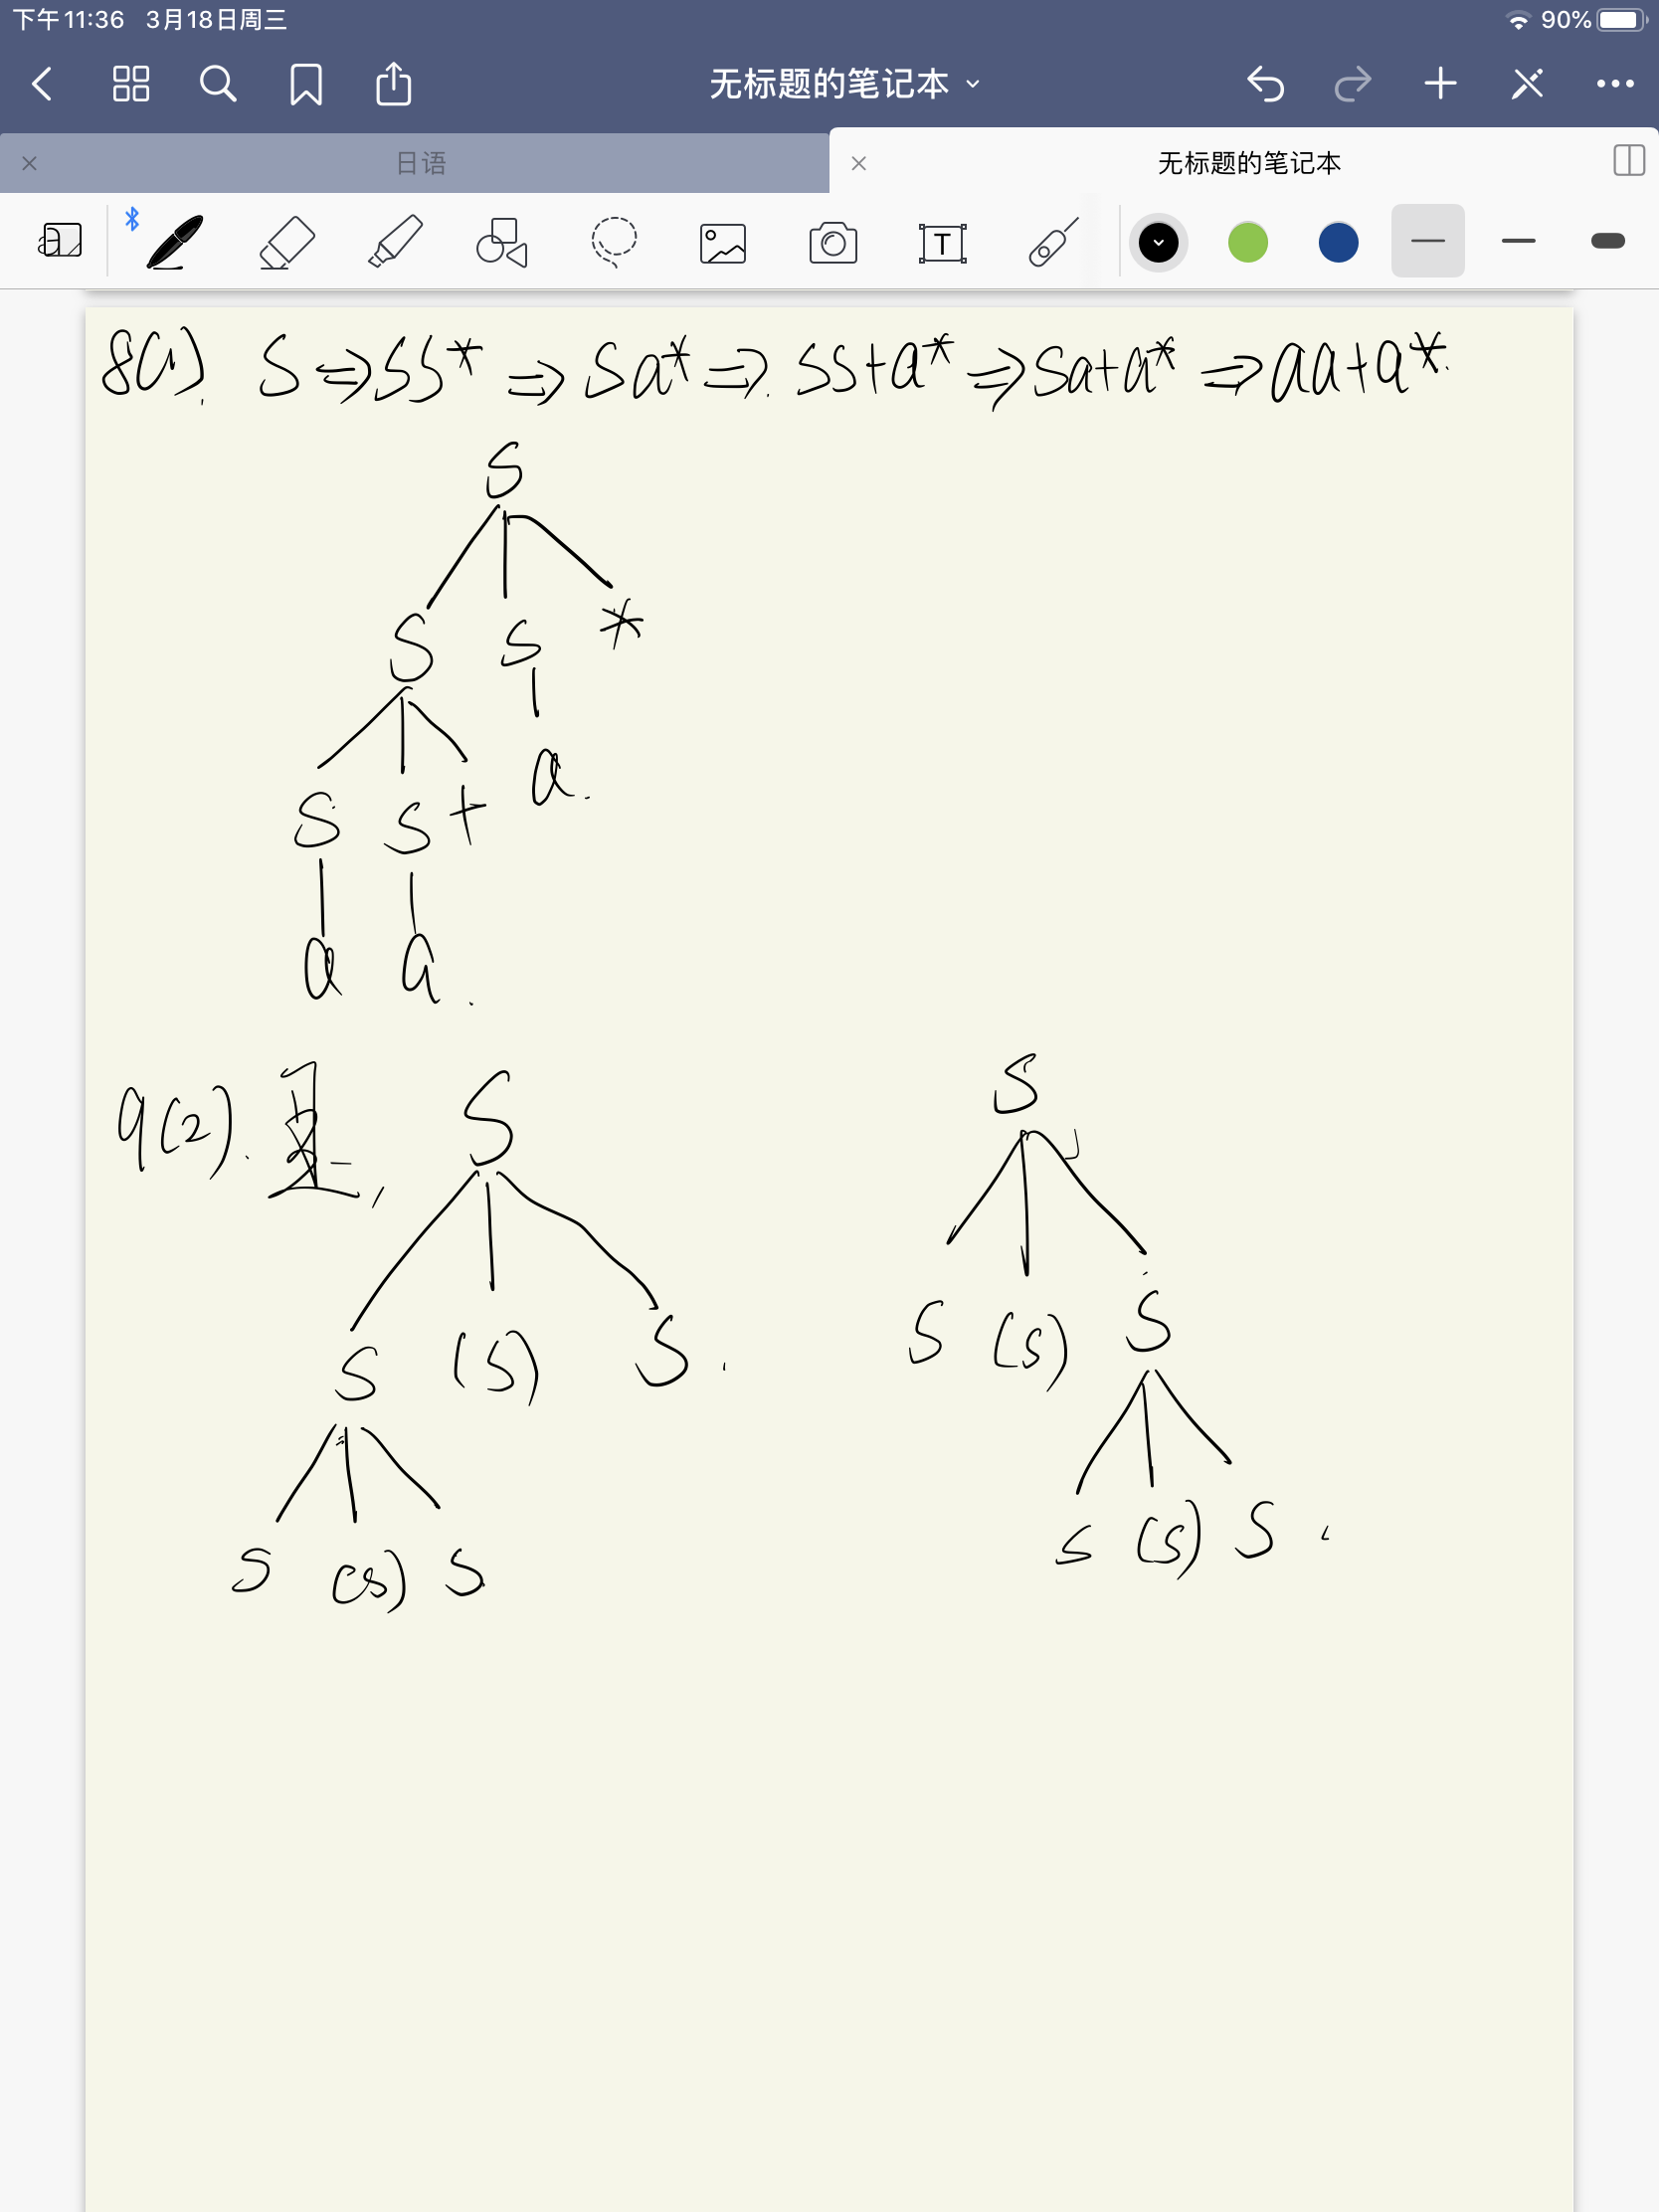 下午11:36 3月18日周三 90%
无标题的笔记本
日语 无标题的笔记本
T
8(1). S⇒SS*⇒Sa*⇒SS+a*⇒Sa+a*⇒aa+a*.
S
S S *
S S + a.
a a.
9(2).
S S
S (S) S. S (S) S
S (S) S S (S) S.